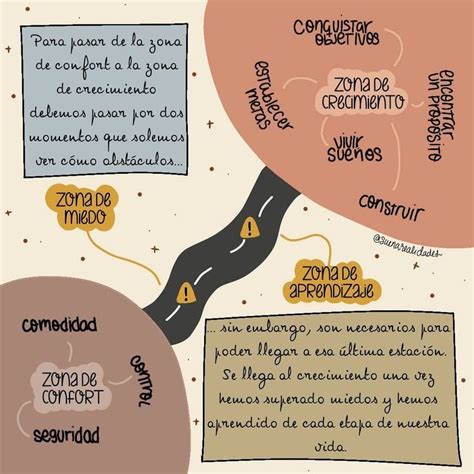 Para pasar de la zona
de confort a la zona
de crecimiento
debemos pasar por dos
momentos que solemos
ver cómo obstáculos...
CONQUISTAR
OBJETIVOS
ESTABLECER
METAS
ZONA DE
CRECIMIENTO
ENCONTRAR
UN PROPÓSITO
VIVIR
SUEÑOS
CONSTRUIR
@suenarealidades
ZONA DE
MIEDO
!
ZONA DE
APRENDIZAJE
!
comodidad
ZONA DE
CONFORT
control
seguridad
... sin embargo, son necesarios para
poder llegar a esa última estación.
Se llega al crecimiento una vez
hemos superado miedos y hemos
aprendido de cada etapa de nuestra
vida.